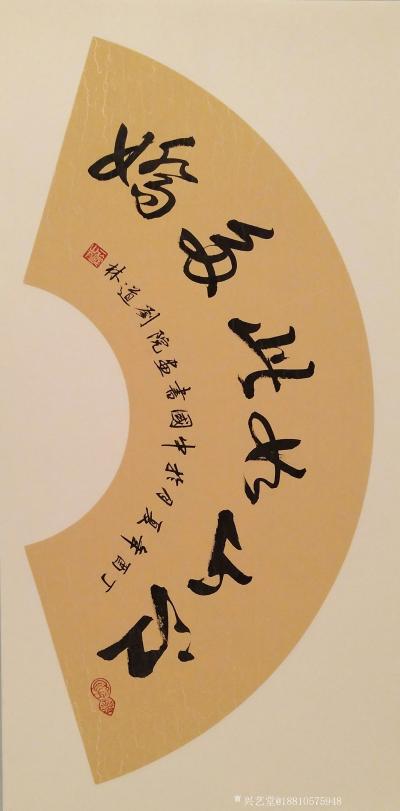 江山如此多嬌
丁酉年夏月於中國書畫院劉道林
兴艺堂@18810575948